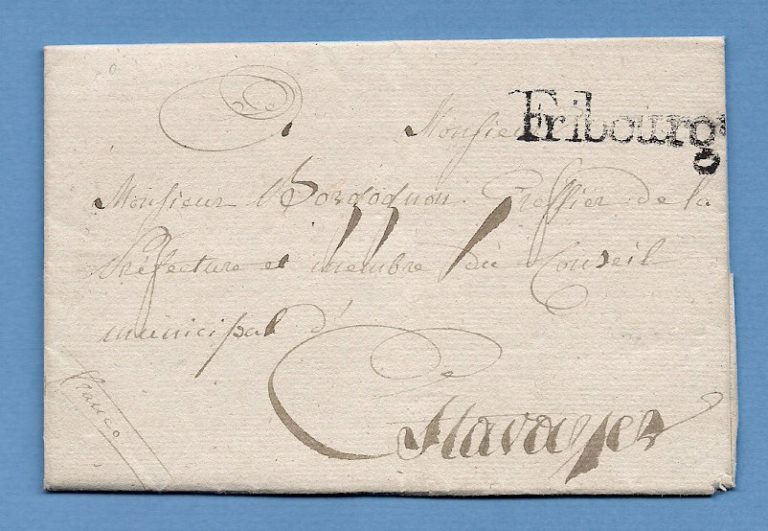 A Monsieur
Fribourg
Monsieur Bourgoqnon Greffier de la
Préfecture et membre du Conseil
municipal d'
Estavayer
franco